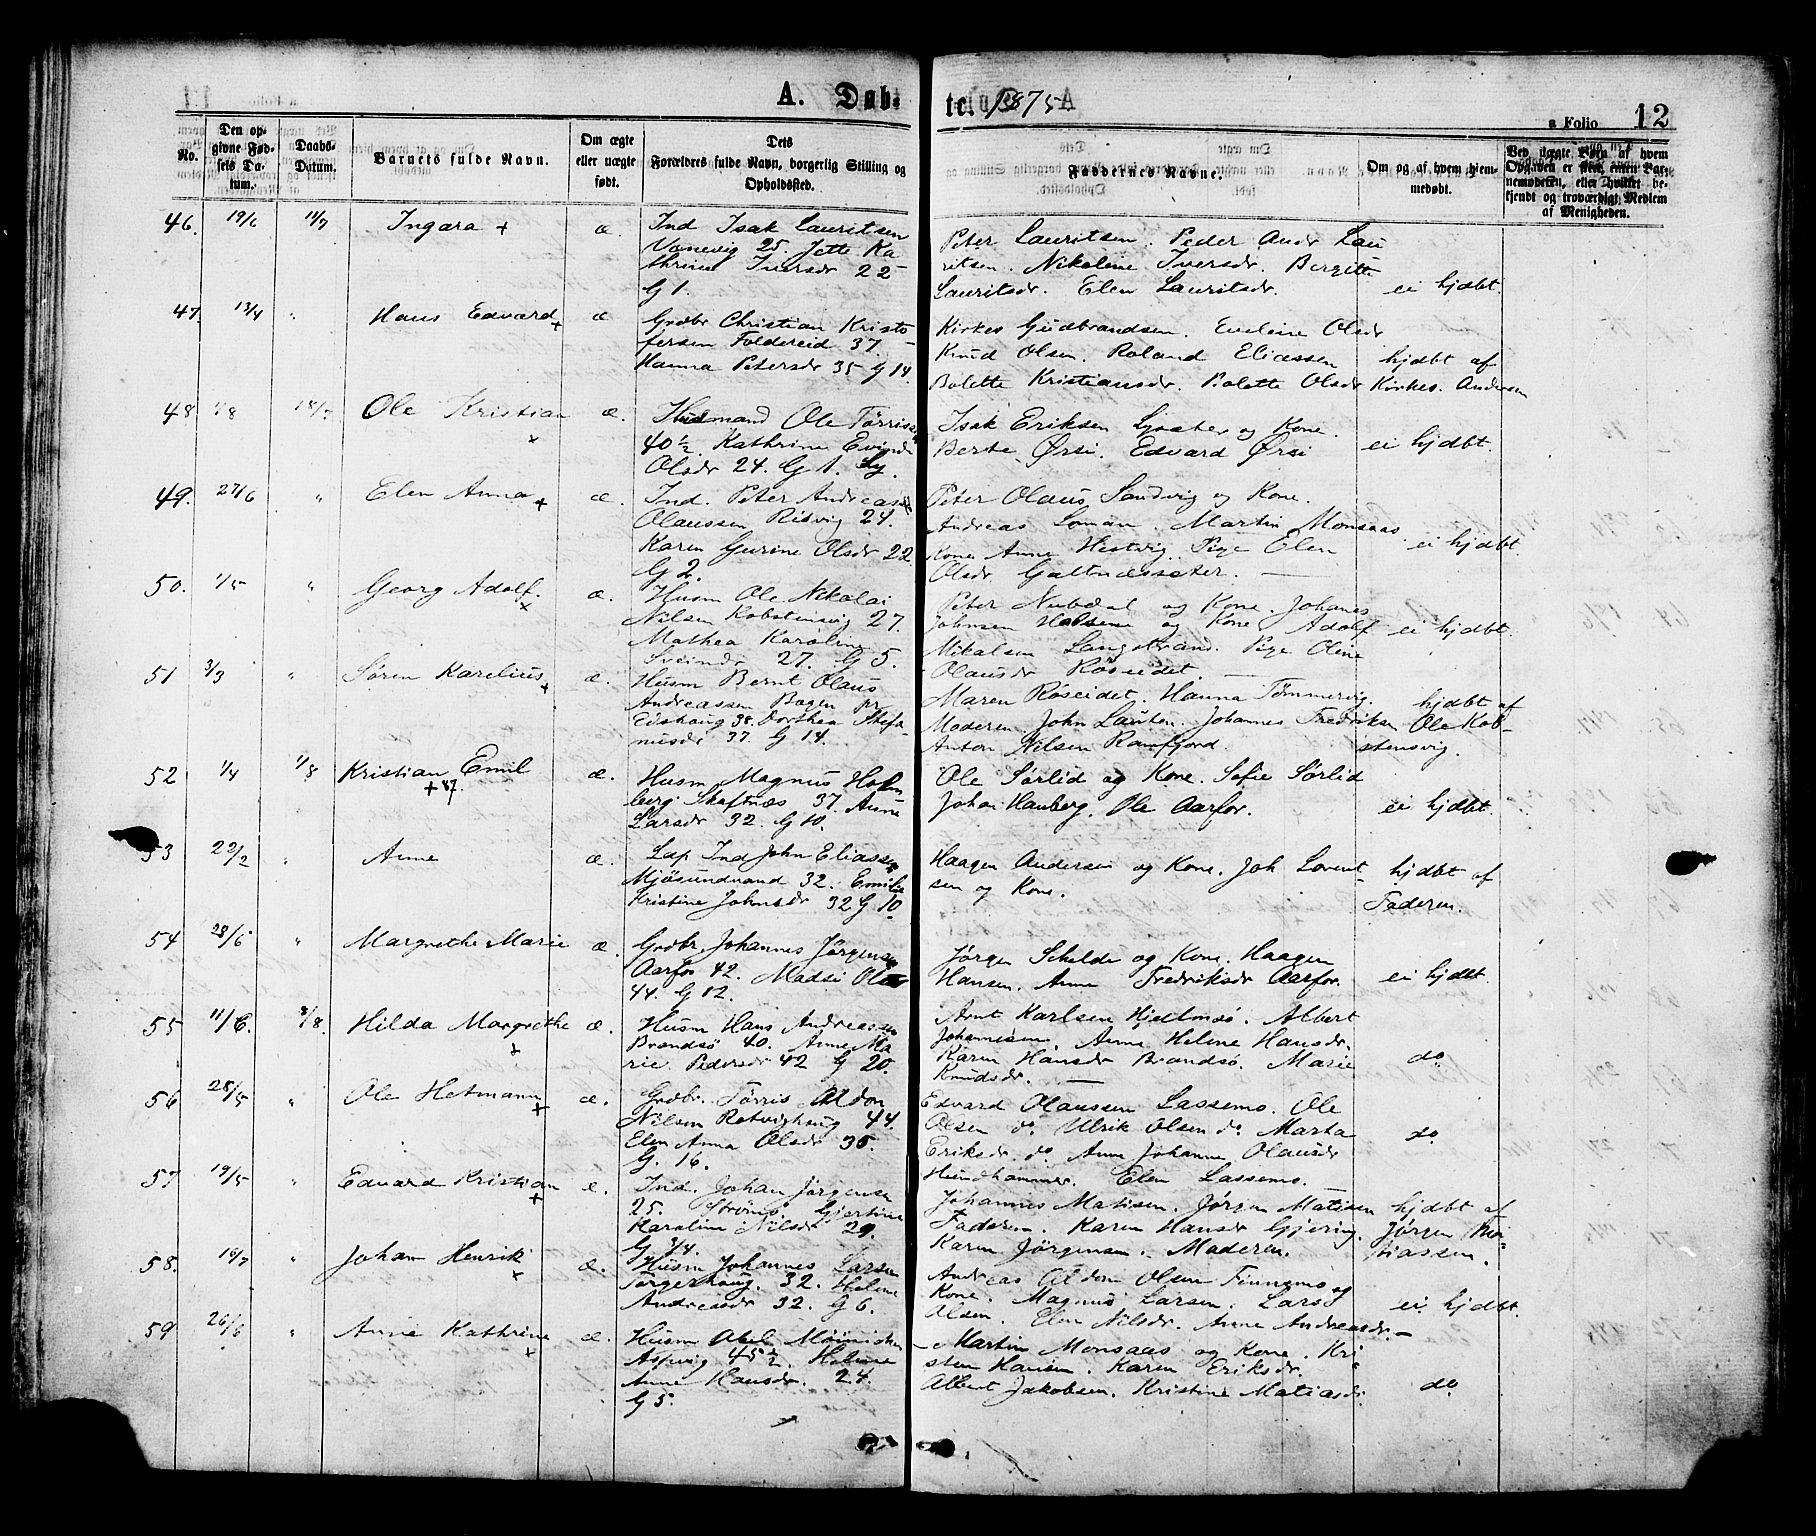 A. Døb-
te. 1875
a Folio 12
No.
Den op-
givne Fød-
sels Da-
tum.
Daabs-
Datum.
Barnets fulde Navn.
Om ægte
eller uægte
født.
Dets
Forældres fulde Navn, borgerlig Stilling og
Opholdssted.
Faddernes Navne.
Om og af hvem hjem-
medøbt.
Ved uægte Børn af hvem
Opgaven er skeet, enten Bar-
nemoderen, eller hvilket be-
kjendt og troværdigt Medlem
af Menigheden.
46. 19/6 11/7 Ingara + æ.
Ind Isak Lauritsen
Vanevig 25 Jette Ka
thrine Iversdr 22
G 1.
Peter Lauritsen. Peder Andr Lau
ritsen. Nikoline Iversdr. Bergitte
Lauritsdr. Elen Lauritsdr.
ei hjdbt.
47. 13/4 " Hans Edvard + æ
Grdbr Christian Kristo
fersen Foldereid 37.
Hanna Petersdr 35 G 14.
Kirkes Gudbrandsen. Eveline Olsdr
Knud Olsen. Roland Eliassen
Bolette Kristiansdr. Bolette Olsdr
hjdbt af
Kirkes. Andersen
48 1/8 18/7 Ole Kristian + æ.
Husmand Ole Tørrisen
40 1/2. Kathrine Evinde
Olsdr 24. G 1.
Isak Eriksen Lysæter og Kone.
Berte Ørsi. Edvard Ørsi
ei hjdbt.
49. 27/6 " Elen Anna + æ.
Ind. Peter Andreas
Olaussen Risvig 24.
Karen Gurine Olsdr 22
G 2.
Peter Olaus Sandvig og Kone.
Andreas Loman. Martin Monsaas
Kone Anne Hestvig. Pige Elen
Olsdr Galtnæssæter.
ei hjdbt.
50. 1/5 " Georg Adolf. + æ.
Husm Ole Nikolai
Nilsen Kobstensvig 27.
Mathea Karoline
Sveinsdr 27. G 5.
Peter Nubdal og Kone. Johanes
Johnsen og Kone Adolf
Mikalsen Langstrand. Pige Oline
Olausdr Røseidet.
ei hjdbt.
51 3/3 " Søren Karelius + æ.
Husm Bernt Olaus
Andreassen Bogen pr
Eidshaug 38. Dorthea Stefa-
nusdr 37. G 14.
Maren Røseidet. Hanna Tømmervig.
Moderen. John Lauten. Johannes Fredriksen
Anton Nilsen Ramfjord.
hjdbt af
Ole Kob-
stensvig.
52 1/4 1/8 Kristian Emil + 87. æ.
Husm Magnus Holm
berg Skaftnæs 37. Anne
Larsdr 32. G 10.
Ole Sørlid og Kone. Sofie Sørlid
Johan Hanberg. Ole Aarfor.
ei hjdbt.
53 22/2 " Anne æ.
Lap Ind John Eliassen
Mjøsundvand 32. Emilie
Kristine Johnsdr 32 G 10
Haagen Andersen og Kone. Joh Lorent-
sen og Kone.
hjdbt af
Faderen.
54 28/6 " Margrethe Marie æ
Grdbr. Johannes Jørgensen
Aarfor 42. Madsi Olsdr
44. G 12.
Jørgen Schelde og Kone. Haagen
Hansen. Anne Fredriksdr Aarfor.
ei hjdbt
55 11/6. 8/8. Hilda Margrethe + æ.
Husm Hans Andreassen
Brandsø 40. Anne Ma
rie Pedersdr 42 G 20.
Arnt Karlsen Hjelmsø. Albert
Johannesen. Anne Helene Hansdr.
Karen Hansdr Brandsø. Marie
Knudsdr.
do
56 28/5 " Ole Hetmann + æ.
Grdbr. Tørris Aldon
Nilsen Rotvighaug 44.
Elen Anna Olsdr 36.
G. 16.
Edvard Olaussen Lassemo. Ole
Olsen do Ulrik Olsen do. Marta
Eriksdr. do Anne Johanne Olausdr
Hundhammer. Elen Lassemo.
do
57 19/5 " Edvard Kristian + æ.
Ind. Johan Jørgensen
25. Gjertine
Karoline Nilsdr 29.
G 3/4.
Johannes Matisen. Jørgen Matisen
Faderen. Karen Hansdr Gjering.
Karen Jørgensen. Moderen.
hjdbt af
Jørgen Ma-
tiassen.
58. 16/7 " Johan Henrik + æ.
Husm Johannes Larsen
Torgerhaug. 32. Helene
Andreasdr 32. G 6.
Andreas Aldon Olsen Finnemo og
Kone. Magnus Larsen. Lars
Olsen. Elen Nilsdr. Anne Andreasdr.
ei hjdbt.
59 26/6 " Anne Kathrine + æ.
Husm Abel Møinichen
Aspvig 45 1/2. Helene
Anne Hansdr. 24.
G 5.
Martin Monsaas og Kone. Kri-
sten Hansen. Karen Eriksdr.
Albert Jakobsen. Kristine Matiasdr
do